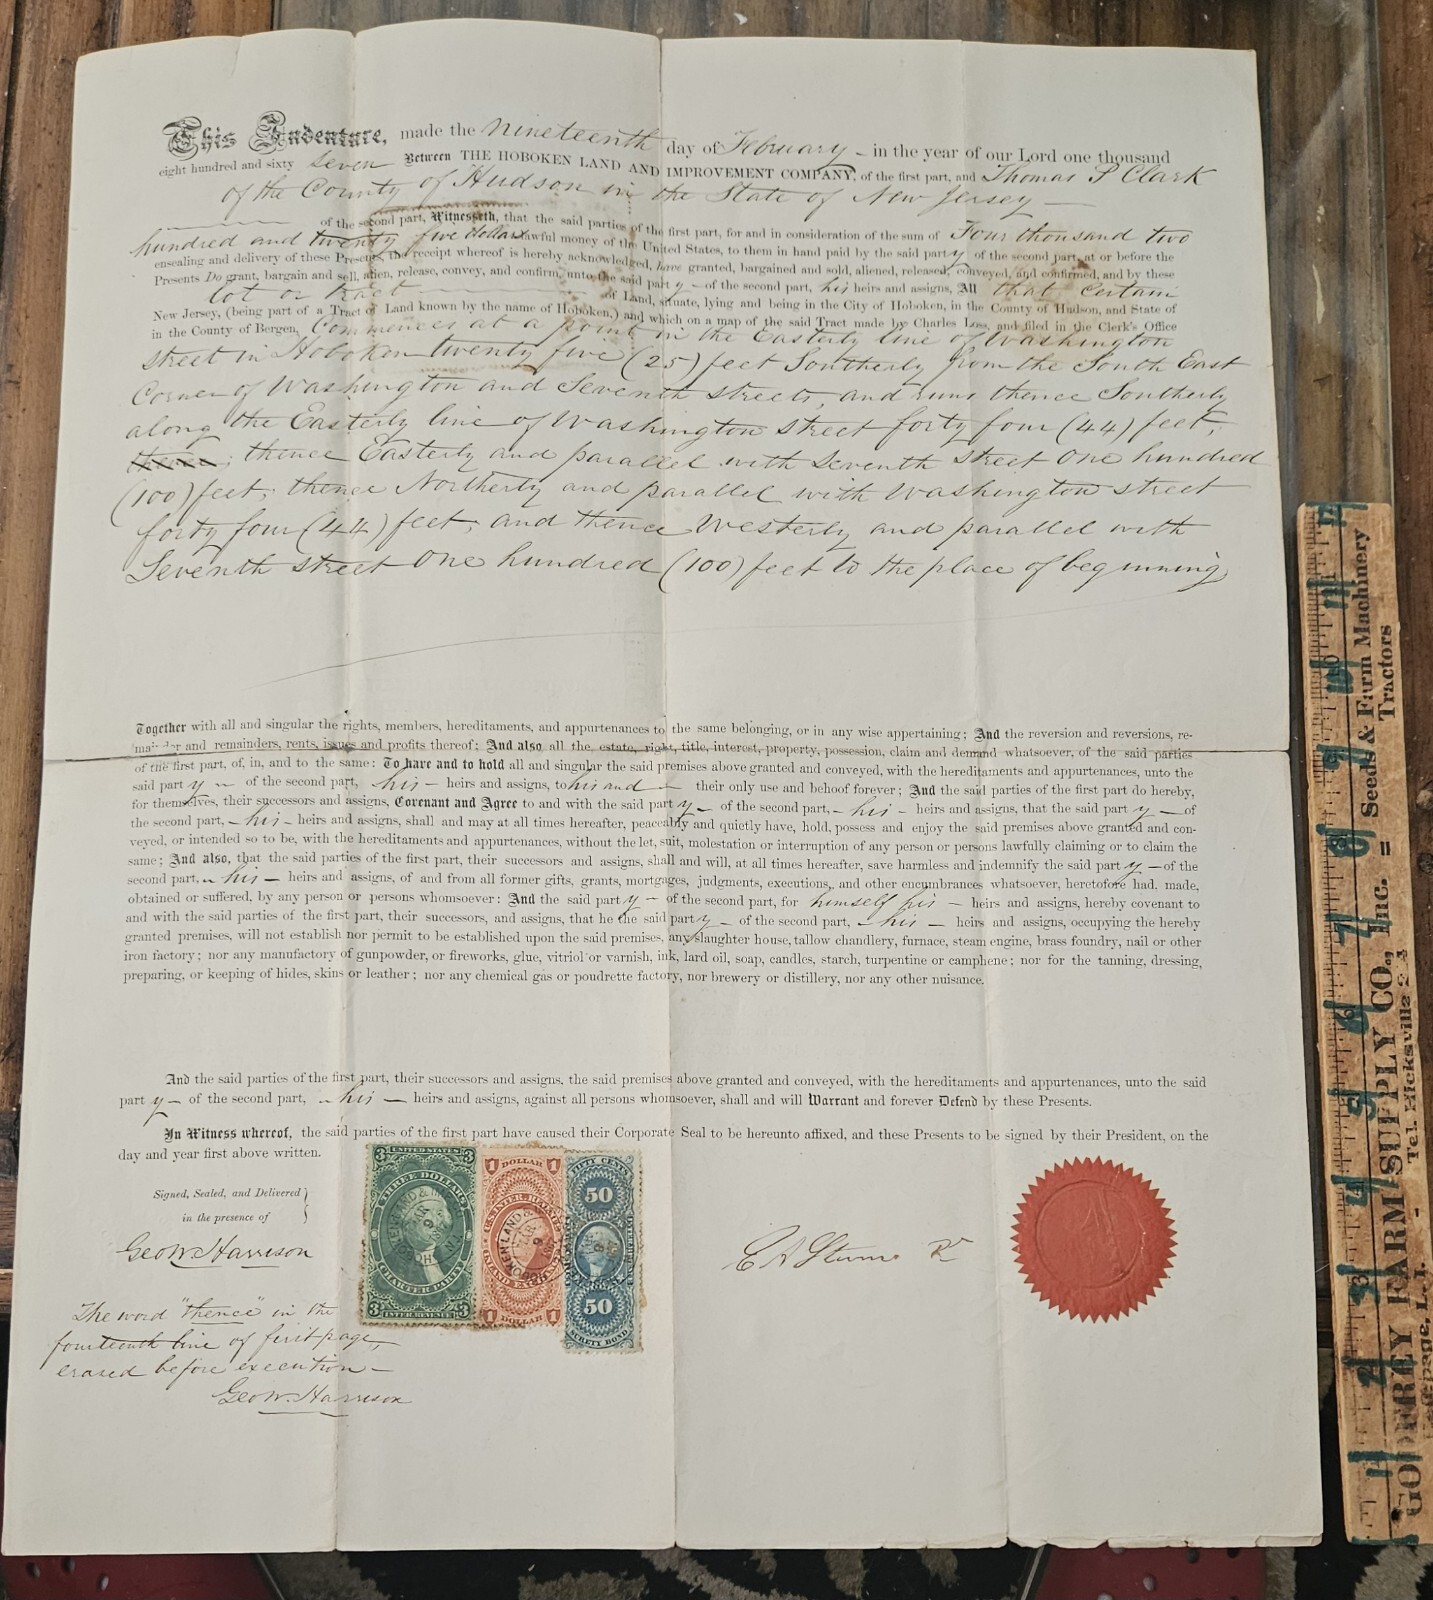 This Indenture, made the nineteenth day of February – in the year of our Lord one thousand
eight hundred and sixty seven Between THE HOBOKEN LAND AND IMPROVEMENT COMPANY, of the first part, and Thomas P Clark
of the County of Hudson in the State of New Jersey —
of the second part, Witnesseth, that the said parties of the first part, for and in consideration of the sum of Four thousand two
hundred and twenty five dollars lawful money of the United States, to them in hand paid by the said party of the second part, at or before the
ensealing and delivery of these Presents, the receipt whereof is hereby acknowledged, have granted, bargained and sold, aliened, released, conveyed, and confirmed, and by these
Presents Do grant, bargain and sell, alien, release, convey, and confirm, unto the said party – of the second part, his heirs and assigns, All that certain
lot or tract — of Land, situate, lying and being in the City of Hoboken, in the County of Hudson, and State of
New Jersey, (being part of a Tract of Land known by the name of Hoboken,) and which on a map of the said Tract made by Charles Loss, and filed in the Clerk's Office
in the County of Bergen, Commences at a point in the Easterly line of Washington
street in Hoboken twenty five (25) feet Southerly from the South East
Corner of Washington and Seventh streets, and runs thence Southerly
along the Easterly line of Washington street forty four (44) feet;
thence; thence Easterly and parallel with Seventh street One hundred
(100) feet; thence Northerly and parallel with Washington street
forty four (44) feet; and thence Westerly and parallel with
Seventh street One hundred (100) feet to the place of beginning
Together with all and singular the rights, members, hereditaments, and appurtenances to the same belonging, or in any wise appertaining; And the reversion and reversions, re-
mainder and remainders, rents, issues and profits thereof; And also all the estate, right, title, interest, property, possession, claim and demand whatsoever, of the said parties
of the first part, of, in, and to the same: To have and to hold all and singular the said premises above granted and conveyed, with the hereditaments and appurtenances, unto the
said party – of the second part, his – heirs and assigns, to his and – their only use and behoof forever; And the said parties of the first part do hereby,
for themselves, their successors and assigns, Covenant and Agree to and with the said party – of the second part, – his – heirs and assigns, that the said party – of
the second part, – his – heirs and assigns, shall and may at all times hereafter, peaceably and quietly have, hold, possess and enjoy the said premises above granted and con-
veyed, or intended so to be, with the hereditaments and appurtenances, without the let, suit, molestation or interruption of any person or persons lawfully claiming or to claim the
same; And also, that the said parties of the first part, their successors and assigns, shall and will, at all times hereafter, save harmless and indemnify the said party – of the
second part, – his – heirs and assigns, of and from all former gifts, grants, mortgages, judgments, executions, and other encumbrances whatsoever, heretofore had, made,
obtained or suffered, by any person or persons whomsoever: And the said party – of the second part, for himself his – heirs and assigns, hereby covenant to
and with the said parties of the first part, their successors, and assigns, that he the said party – of the second part, – his – heirs and assigns, occupying the hereby
granted premises, will not establish nor permit to be established upon the said premises, any slaughter house, tallow chandlery, furnace, steam engine, brass foundry, nail or other
iron factory; nor any manufactory of gunpowder, or fireworks, glue, vitriol or varnish, ink, lard oil, soap, candles, starch, turpentine or camphene; nor for the tanning, dressing,
preparing, or keeping of hides, skins or leather; nor any chemical gas or poudrette factory, nor brewery or distillery, nor any other nuisance.
And the said parties of the first part, their successors and assigns, the said premises above granted and conveyed, with the hereditaments and appurtenances, unto the said
party – of the second part, – his – heirs and assigns, against all persons whomsoever, shall and will Warrant and forever Defend by these Presents.
In Witness whereof, the said parties of the first part have caused their Corporate Seal to be hereunto affixed, and these Presents to be signed by their President, on the
day and year first above written.
Signed, Sealed, and Delivered
in the presence of
Geo W. Harrison
The word "thence" in the
fourteenth line of first page,
erased before execution –
Geo W. Harrison
3 UNITED STATES 3
THREE DOLLARS
CHARTER PARTY
3 INTER. REVENUE 3
1 DOLLAR 1
U.S. INTER. REVENUE
INLAND EXCHANGE
1 DOLLAR 1
FIFTY CENTS
50
50
SURETY BOND
GODFREY FARM SUPPLY CO., Inc. = Seeds & Farm Machinery
Tractors
Tel. Hicksville 24